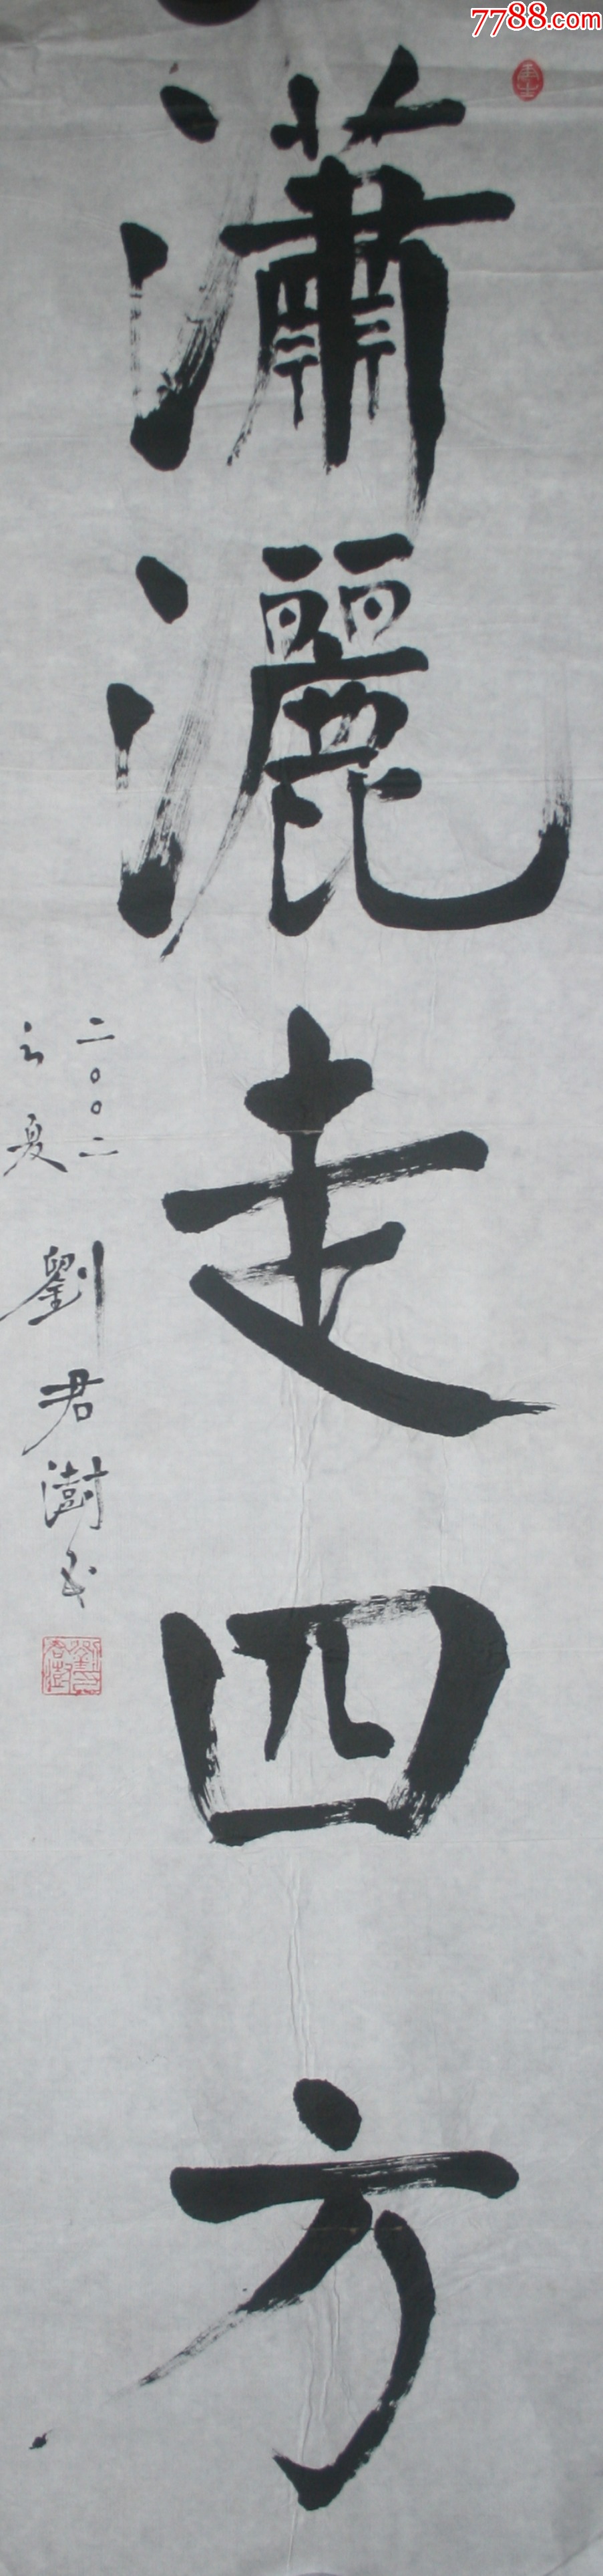 7788.com
瀟灑走四方
二〇〇二
之夏
劉君澍书